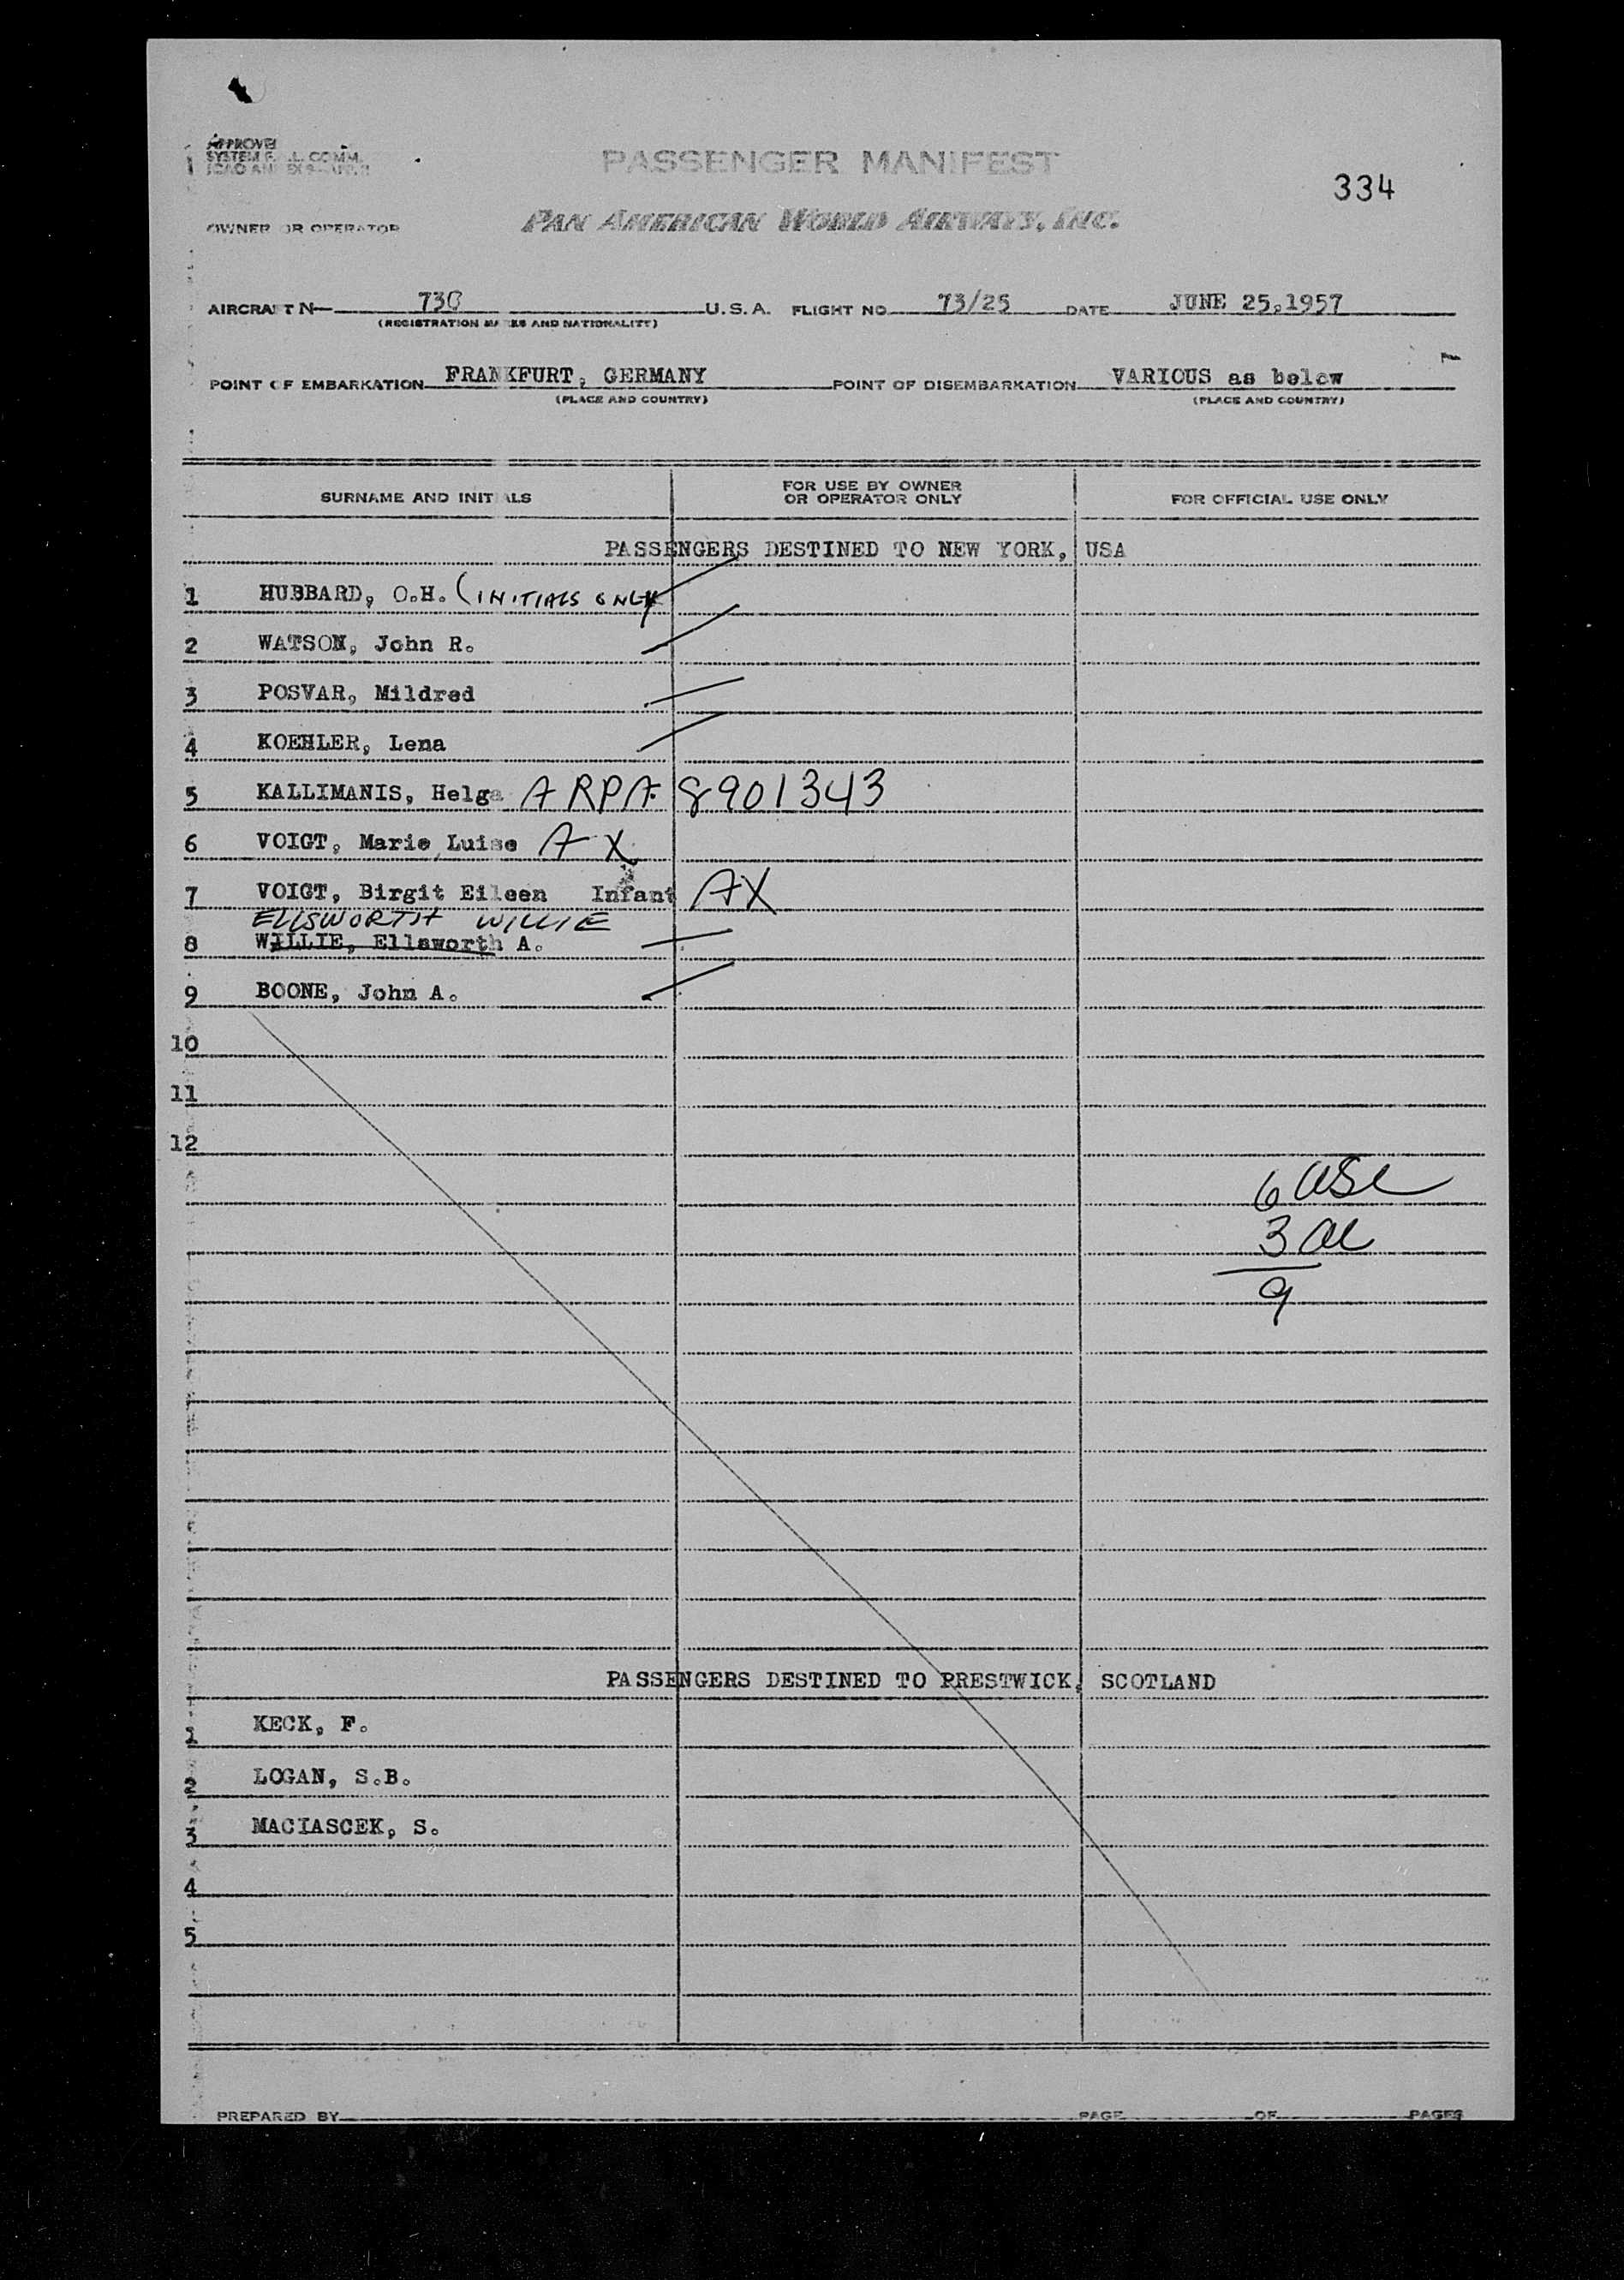 APPROVE
SYSTEM F. L. COMM.
PASSENGER MANIFEST
334
OWNER OR OPERATOR
PAN AMERICAN WORLD AIRWAYS, INC.
AIRCRAFT N— 73C U.S.A. FLIGHT NO. 73/25 DATE JUNE 25,1957
(REGISTRATION MARKS AND NATIONALITY)
POINT OF EMBARKATION FRANKFURT, GERMANY POINT OF DISEMBARKATION VARIOUS as below
(PLACE AND COUNTRY) (PLACE AND COUNTRY)
SURNAME AND INITIALS FOR USE BY OWNER OR OPERATOR ONLY FOR OFFICIAL USE ONLY
PASSENGERS DESTINED TO NEW YORK, USA
1 HUBBARD, O.H. (INITIALS ONLY
2 WATSON, John R.
3 POSVAR, Mildred
4 KOEHLER, Lena
5 KALLIMANIS, Helga ARPA 8901343
6 VOIGT, Marie Luise AX
7 VOIGT, Birgit Eileen Infant AX
ELLSWORTH WILLIE
8 WILLIE, Ellsworth A.
9 BOONE, John A.
10
11
12
6 USC
3 al
9
PASSENGERS DESTINED TO PRESTWICK, SCOTLAND
1 KECK, F.
2 LOGAN, S.B.
3 MACIASCEK, S.
4
5
PREPARED BY PAGE OF PAGES